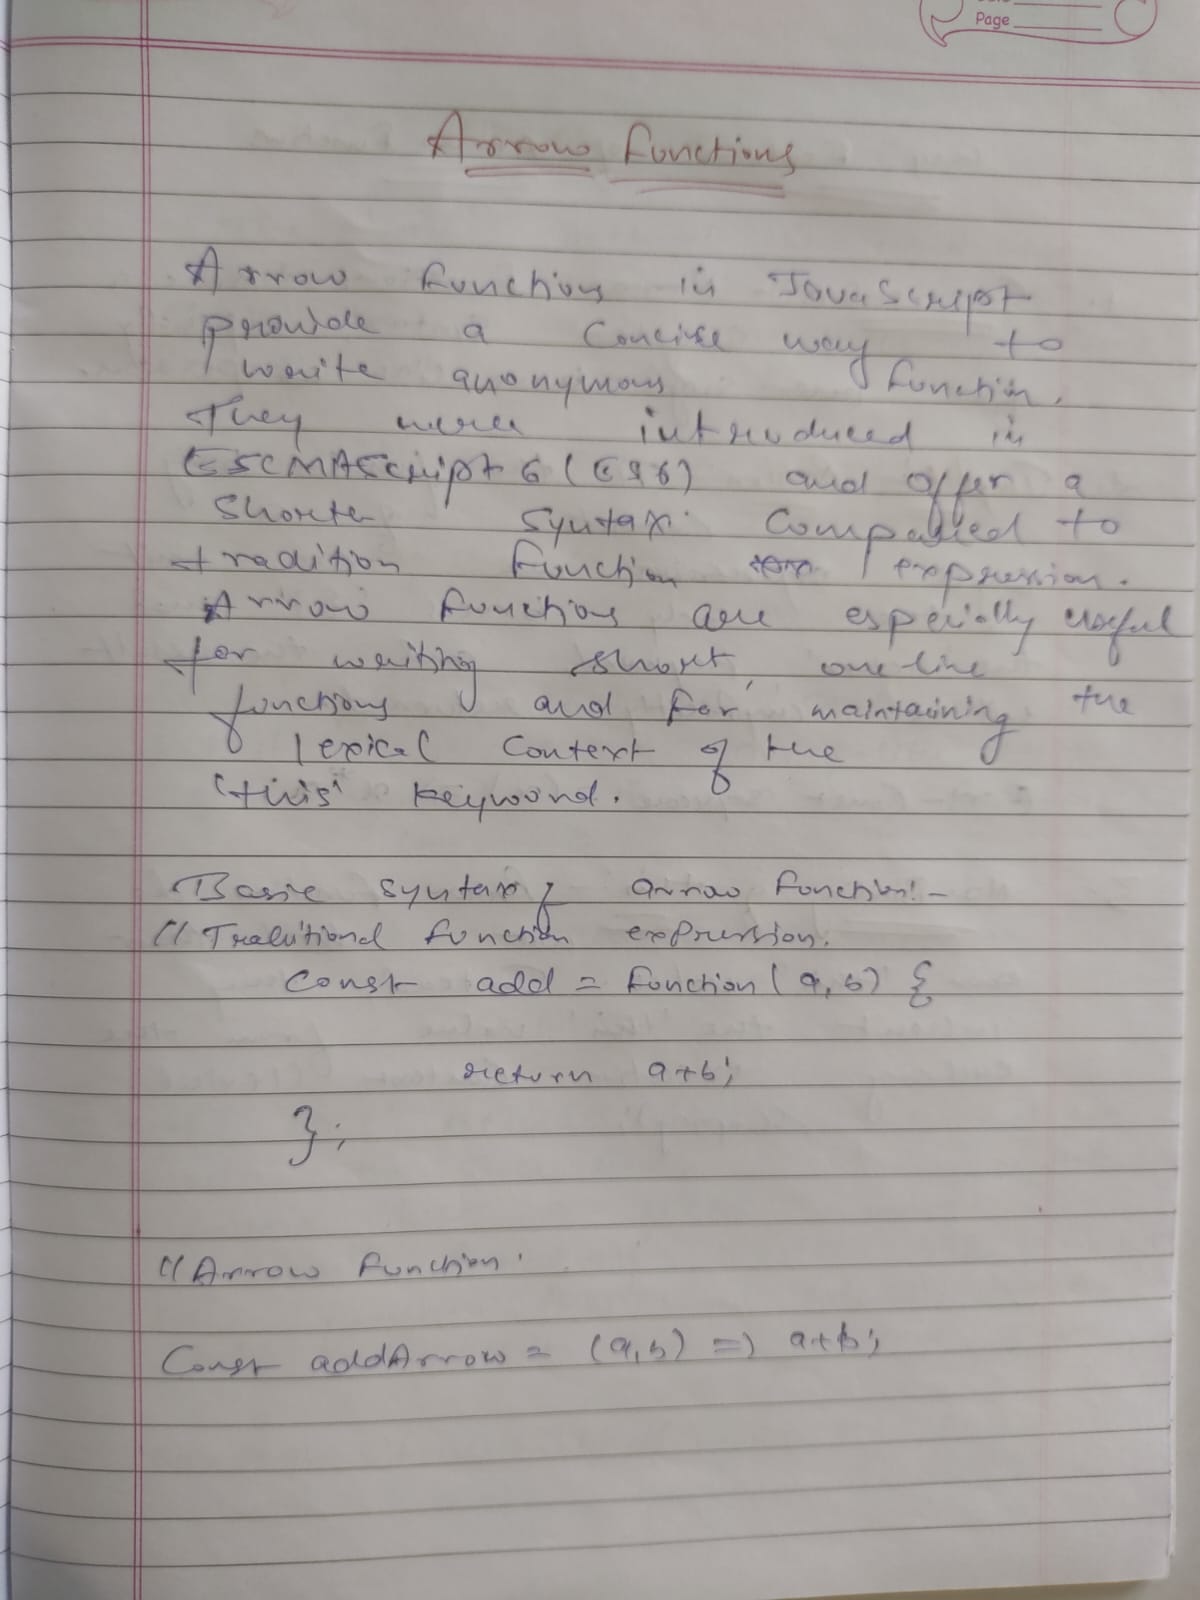 Page
Arrow functions
Arrow functions in JavaScript
provide a concise way to
write anonymous function.
They were introduced in
ESCMAScript 6 (ES6) and offer a
shorter syntax compared to
tradition function expression.
Arrow functions are especially useful
for writing short, one-line
functions and for maintaining the
lexical context of the
'this' keyword.
Basic syntax of arrow function:-
// Traditional function expression.
Const add = function(a,b) {
return a+b;
};
// Arrow function.
Const addArrow = (a,b) => a+b;